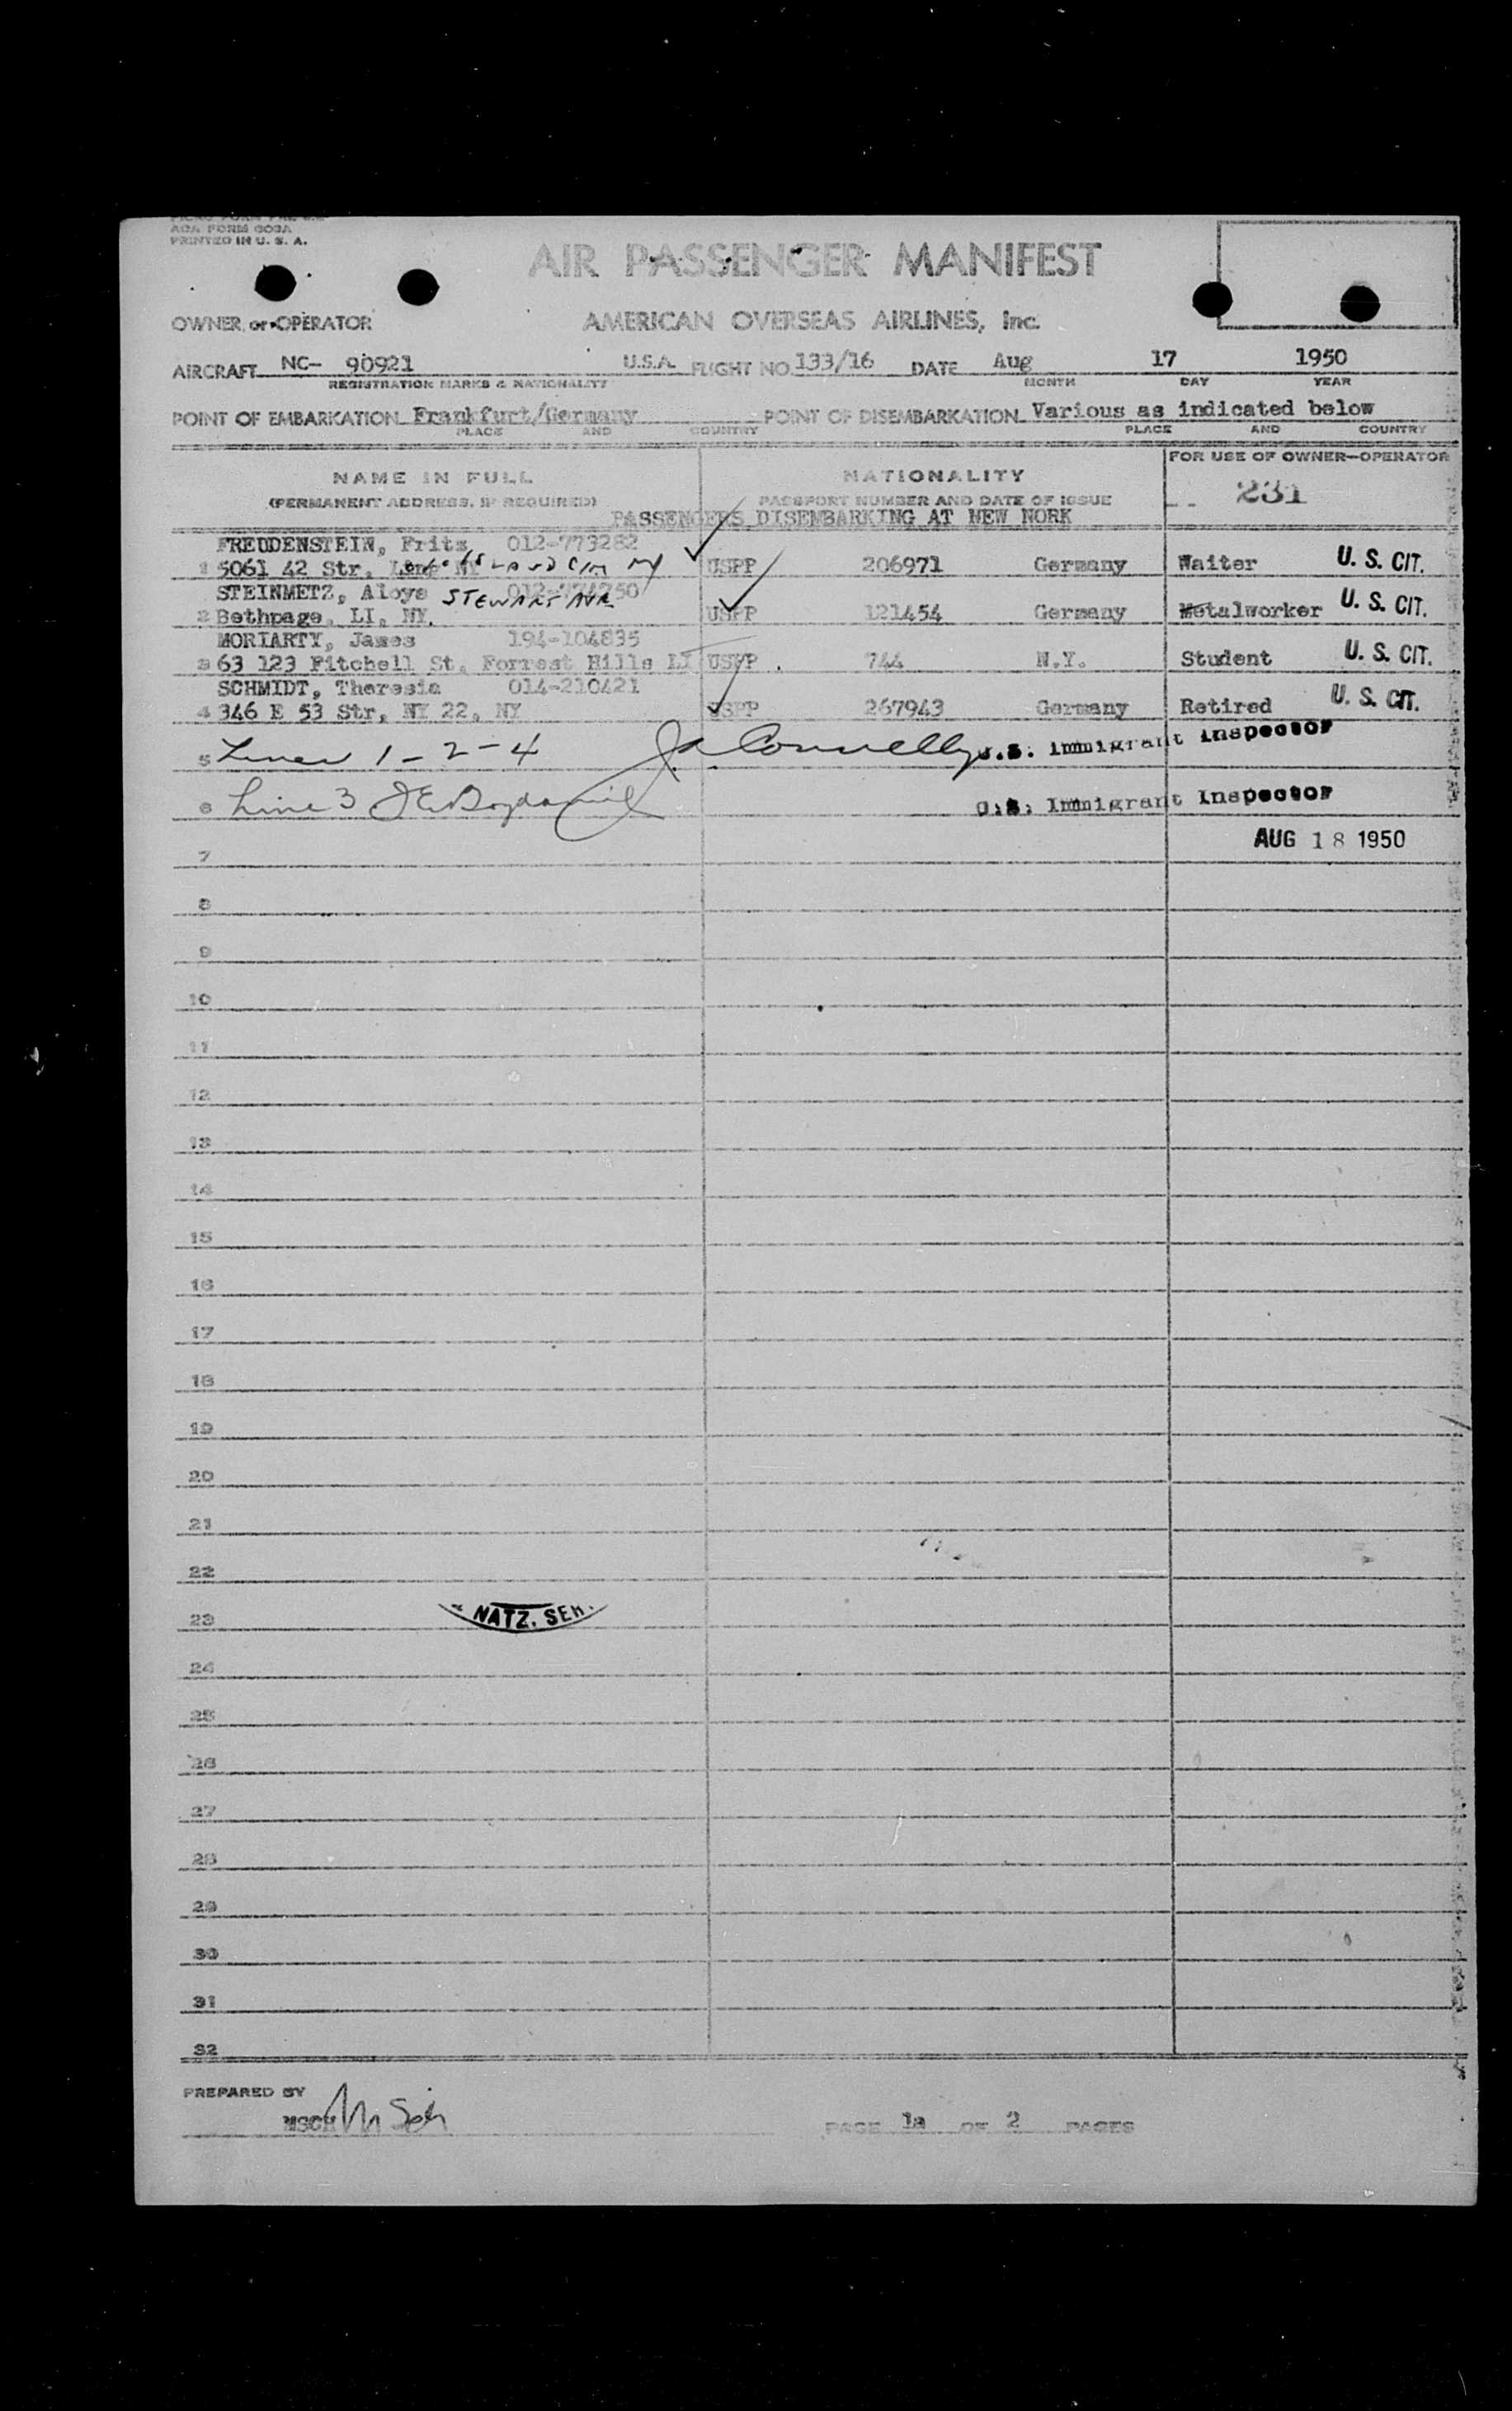 ACA FORM
PRINTED IN U. S. A.
AIR PASSENGER MANIFEST
OWNER or OPERATOR AMERICAN OVERSEAS AIRLINES, Inc.
AIRCRAFT NC- 90921 U.S.A. FLIGHT NO. 133/16 DATE Aug 17 1950
REGISTRATION MARKS & NATIONALITY MONTH DAY YEAR
POINT OF EMBARKATION Frankfurt/Germany POINT OF DISEMBARKATION Various as indicated below
PLACE AND COUNTRY PLACE AND COUNTRY
NAME IN FULL NATIONALITY FOR USE OF OWNER—OPERATOR
(PERMANENT ADDRESS, IF REQUIRED) PASSPORT NUMBER AND DATE OF ISSUE 231
PASSENGERS DISEMBARKING AT NEW NORK
FREUDENSTEIN, Fritz 012-773282
1 5061 42 Str. ISLAND CITY NY USPP 206971 Germany Waiter U. S. CIT.
STEINMETZ, Aloys STEWART AVR
2 Bethpage, LI, NY. USPP 121454 Germany Metalworker U. S. CIT.
MORIARTY, James 194-104835
3 63 123 Fitchell St. Forrest Hills LI USPP 744 N.Y. Student U. S. CIT.
SCHMIDT, Theresia 014-210421
4 346 E 53 Str, NY 22, NY USPP 267943 Germany Retired U. S. CIT.
5 Lines 1 - 2 - 4 Connelly U.S. Immigrant Inspector
6 Line 3 U.S. Immigrant Inspector
7 AUG 18 1950
8
9
10
11
12
13
14
15
16
17
18
19
20
21
22
23 NATZ. SER.
24
25
26
27
28
29
30
31
32
PREPARED BY
MSCH PAGE 1a OF 2 PAGES